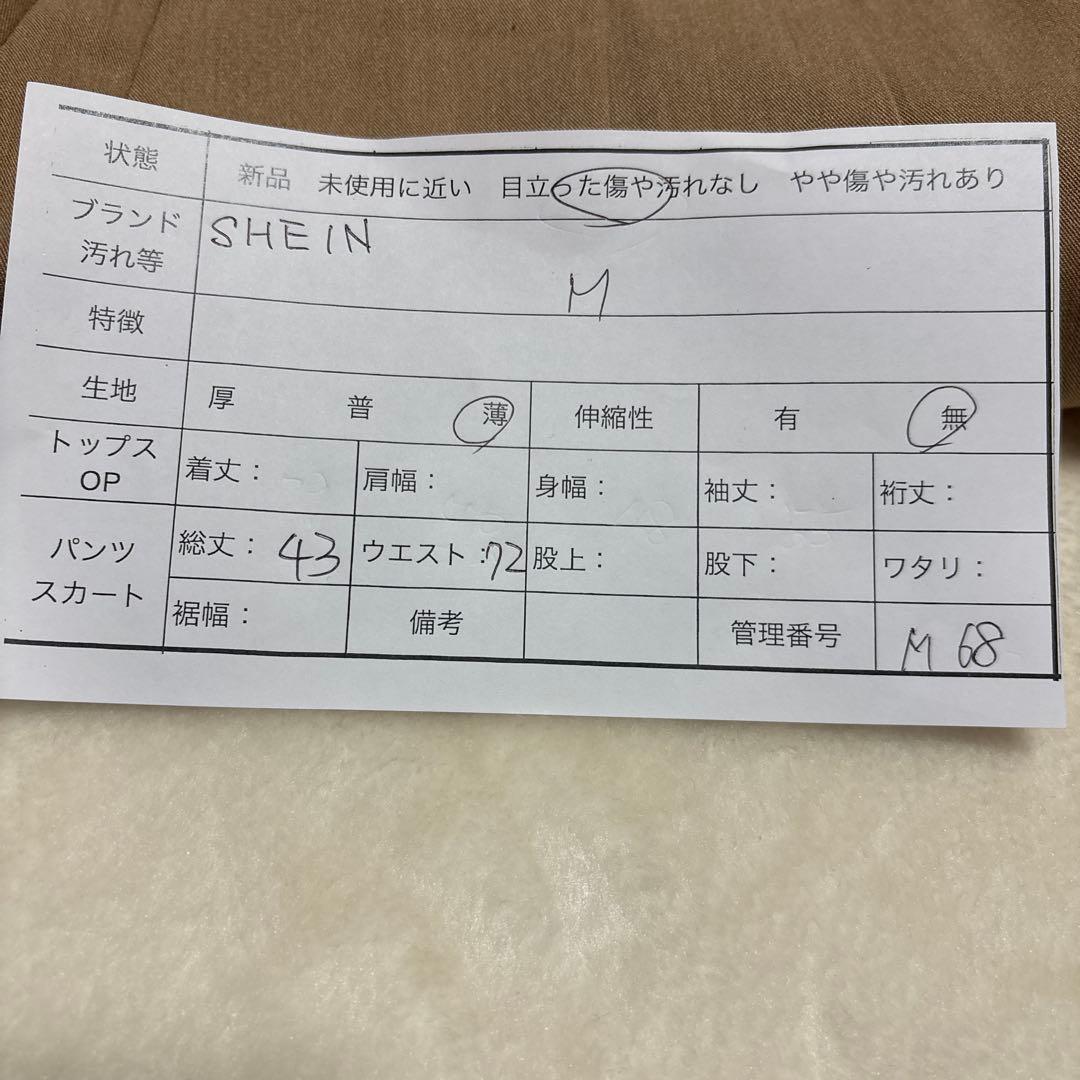 状態 新品 未使用に近い 目立った傷や汚れなし やや傷や汚れあり
ブランド 汚れ等 SHEIN M
特徴
生地 厚 普 薄 伸縮性 有 無
トップス OP 着丈： 肩幅： 身幅： 袖丈： 裄丈：
パンツ スカート 総丈：43 ウエスト：72 股上： 股下： ワタリ：
裾幅： 備考 管理番号 M 68